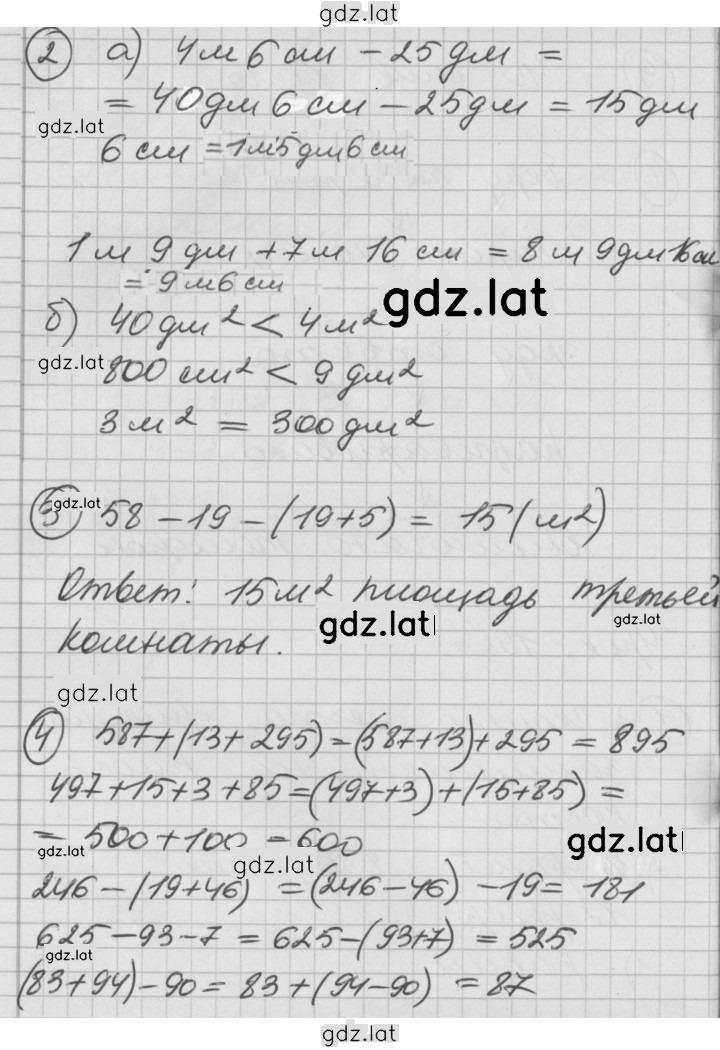 gdz.lat
2 а) 4м 6 см – 25 дм =
= 40 дм 6 см – 25 дм = 15 дм
gdz.lat
6 см = 1м 5 дм 6 см
1 м 9 дм + 7 м 16 см = 8 м 9 дм 16 см
= 9 м 6 см
gdz.lat
б) 40 дм² < 4 м²
gdz.lat
800 см² < 9 дм²
3 м² = 300 дм²
3 gdz.lat 58 – 19 – (19 + 5) = 15 (м²)
Ответ: 15 м² площадь третьей
gdz.lat
gdz.lat
комнаты.
gdz.lat
4 587 + (13 + 295) = (587 + 13) + 295 = 895
497 + 15 + 3 + 85 = (497 + 3) + (15 + 85) =
= 500 + 100 = 600
gdz.lat
gdz.lat
gdz.lat
246 – (19 + 46) = (246 – 46) – 19 = 181
625 – 93 – 7 = 625 – (93 + 7) = 525
gdz.lat
(83 + 94) – 90 = 83 + (94 – 90) = 87
gdz.lat